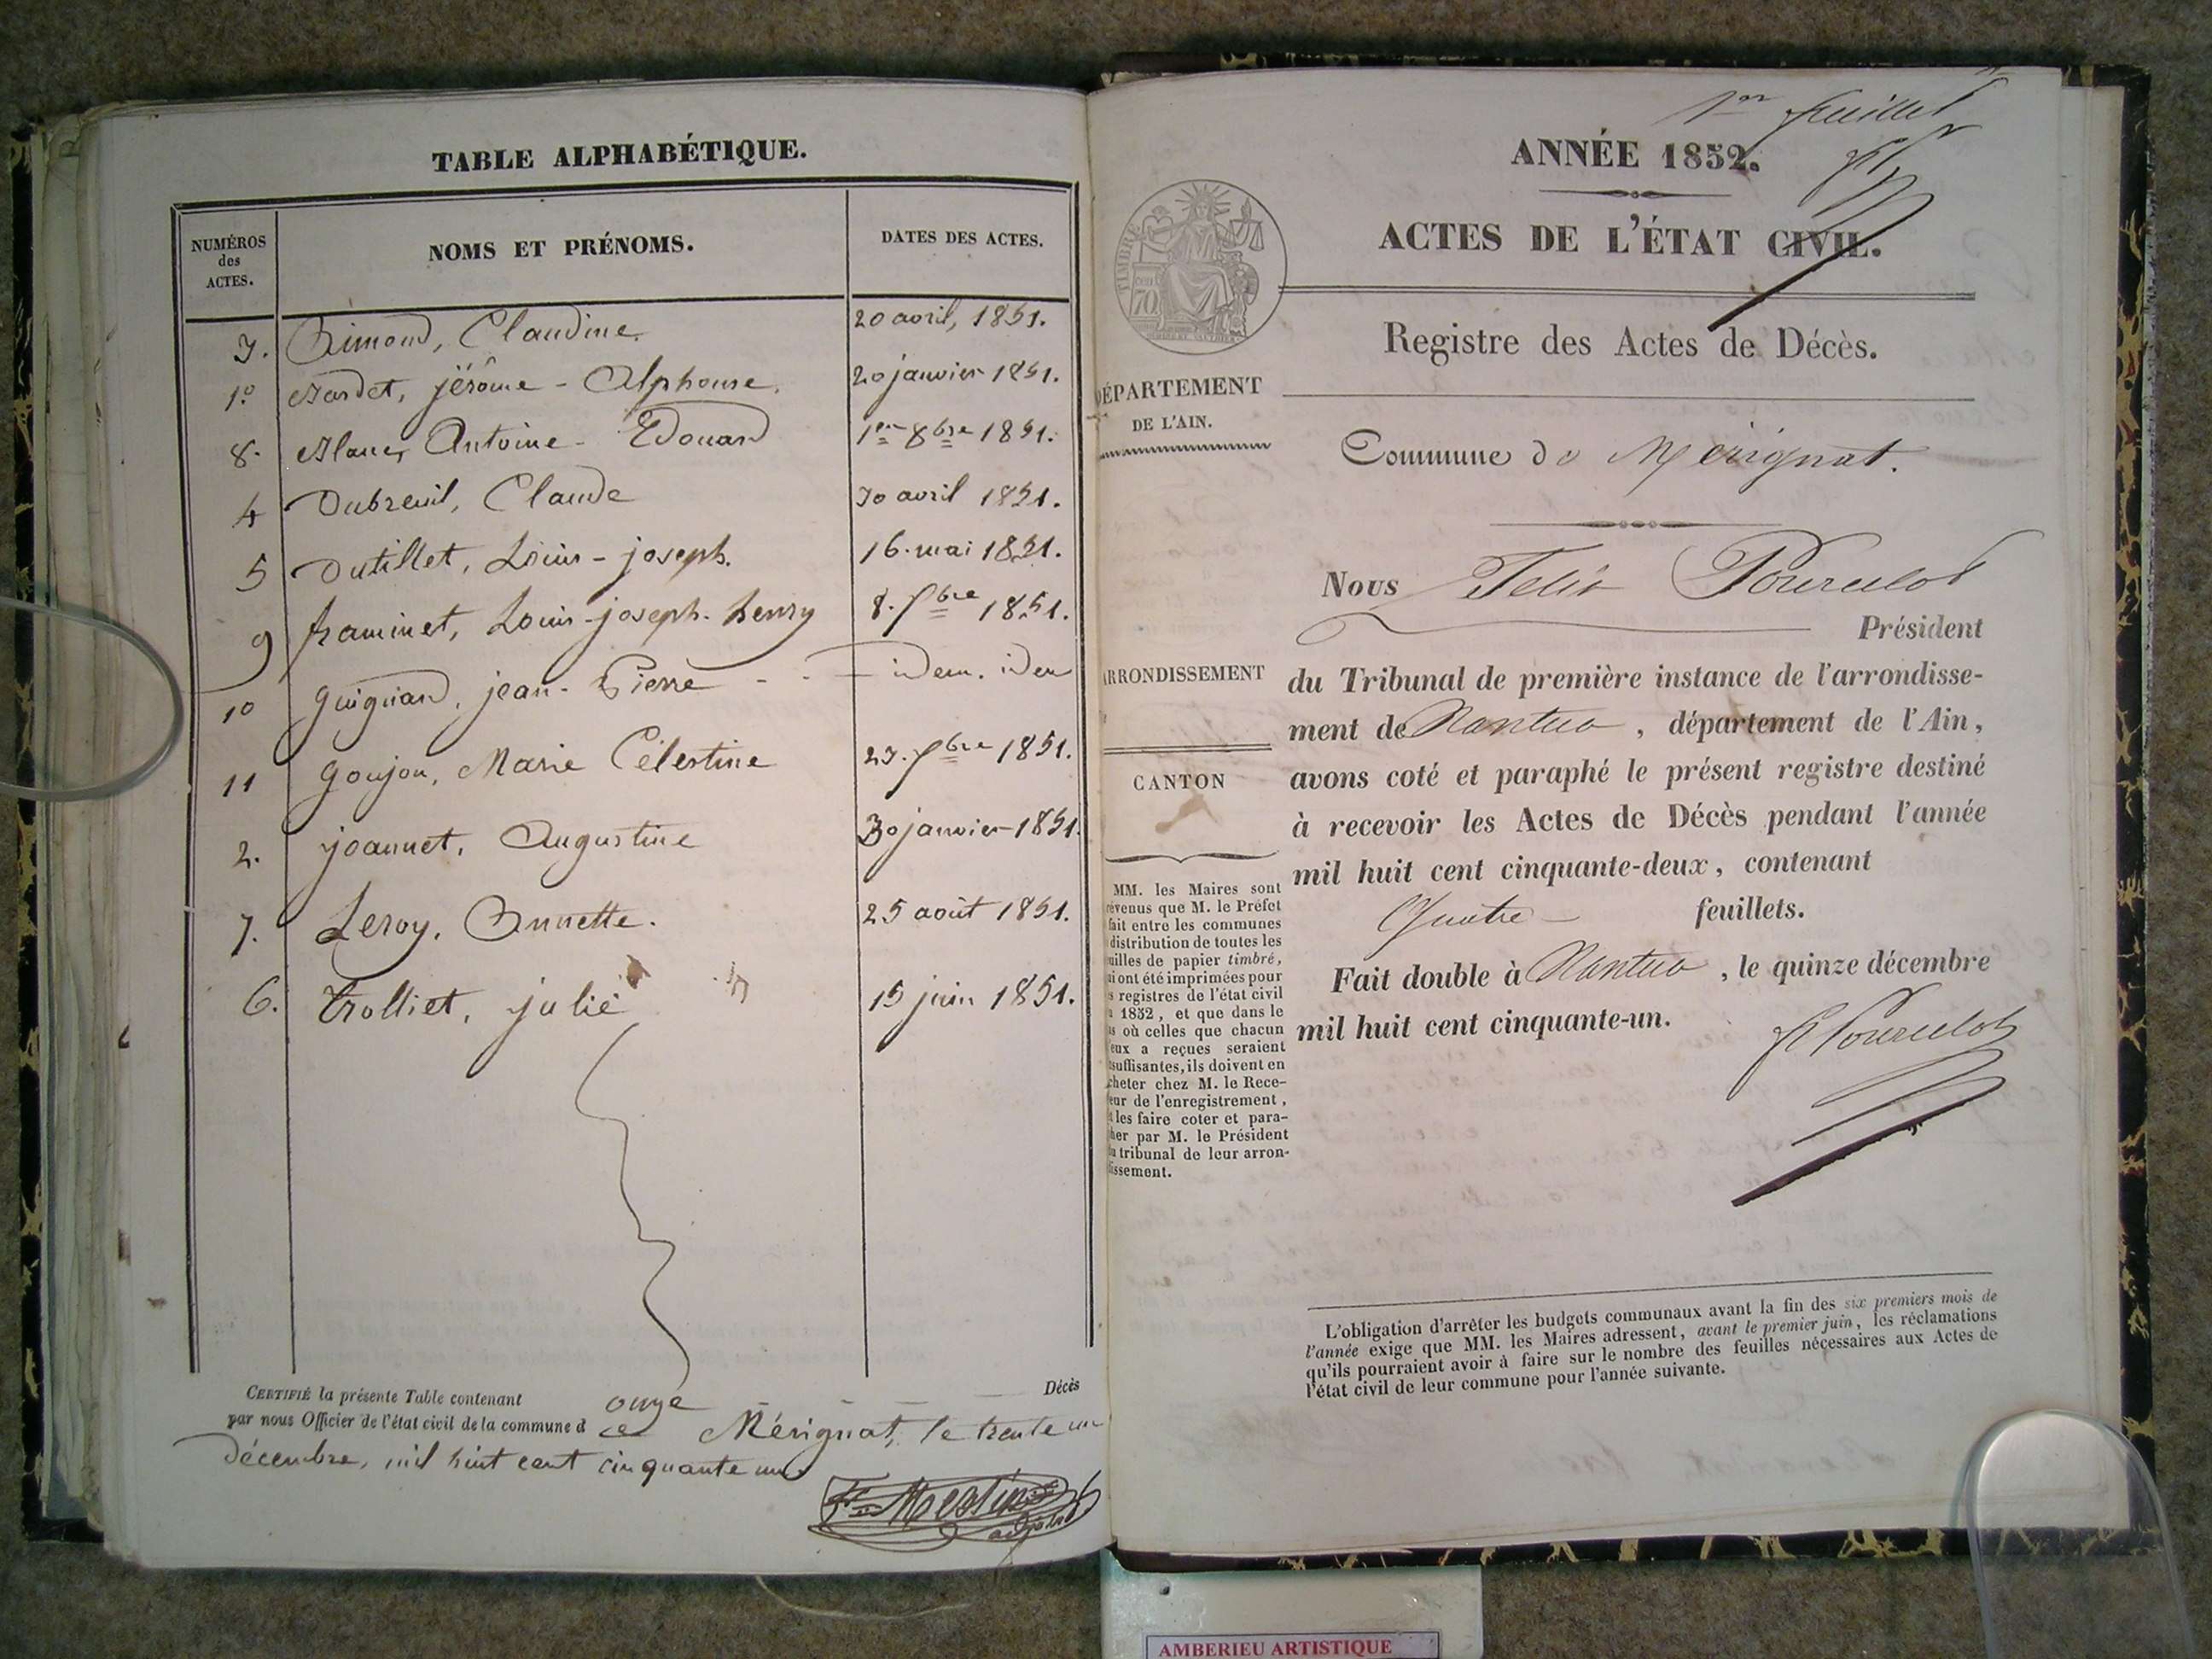 TABLE ALPHABÉTIQUE.
NUMÉROS
des
ACTES.
NOMS ET PRÉNOMS.
DATES DES ACTES.
3. Aimond, Claudine. 20 avril, 1851.
1º Bardet, jérôme - Alphonse. 20 janvier 1851.
8. Blanc, Antoine - Edouard 1er 8bre 1851.
4 Dubreuil, Claude 30 avril 1851.
5 Dutillet, Louis - joseph. 16. mai 1851.
9 framinet, Louis-joseph-henry 8. 9bre 1851.
10 Guignard, jean-Pierre - - idem. idem
11 Goujon, Marie Célestine 23. 9bre 1851.
2. joannet, Augustine 30 janvier 1851.
7. Leroy, Annette. 25 août 1851.
6. Trolliet, julie 15 juin 1851.
CERTIFIÉ la présente Table contenant onze Décès
par nous Officier de l'état civil de la commune de Mérignat, le trente un
décembre, mil huit cent cinquante un.
adjoint
1er feuillet
ANNÉE 1852.
ACTES DE L'ÉTAT CIVIL.
TIMBRE
70
Registre des Actes de Décès.
DÉPARTEMENT
DE L'AIN.
Commune de Mérignat.
Nous Félix Pourcelot
Président
ARRONDISSEMENT
du Tribunal de première instance de l'arrondisse-
ment de Nantua, département de l'Ain,
avons coté et paraphé le présent registre destiné
à recevoir les Actes de Décès pendant l'année
mil huit cent cinquante-deux, contenant
Quatre feuillets.
Fait double à Nantua, le quinze décembre
mil huit cent cinquante-un.
F Pourcelot
CANTON
MM. les Maires sont
révenus que M. le Préfet
fait entre les communes
distribution de toutes les
uilles de papier timbré,
ui ont été imprimées pour
s registres de l'état civil
1852, et que dans le
as où celles que chacun
eux a reçues seraient
suffisantes, ils doivent en
cheter chez M. le Rece-
eur de l'enregistrement,
t les faire coter et para-
her par M. le Président
u tribunal de leur arron-
issement.
L'obligation d'arrêter les budgets communaux avant la fin des six premiers mois de
l'année exige que MM. les Maires adressent, avant le premier juin, les réclamations
qu'ils pourraient avoir à faire sur le nombre des feuilles nécessaires aux Actes de
l'état civil de leur commune pour l'année suivante.
AMBERIEU ARTISTIQUE